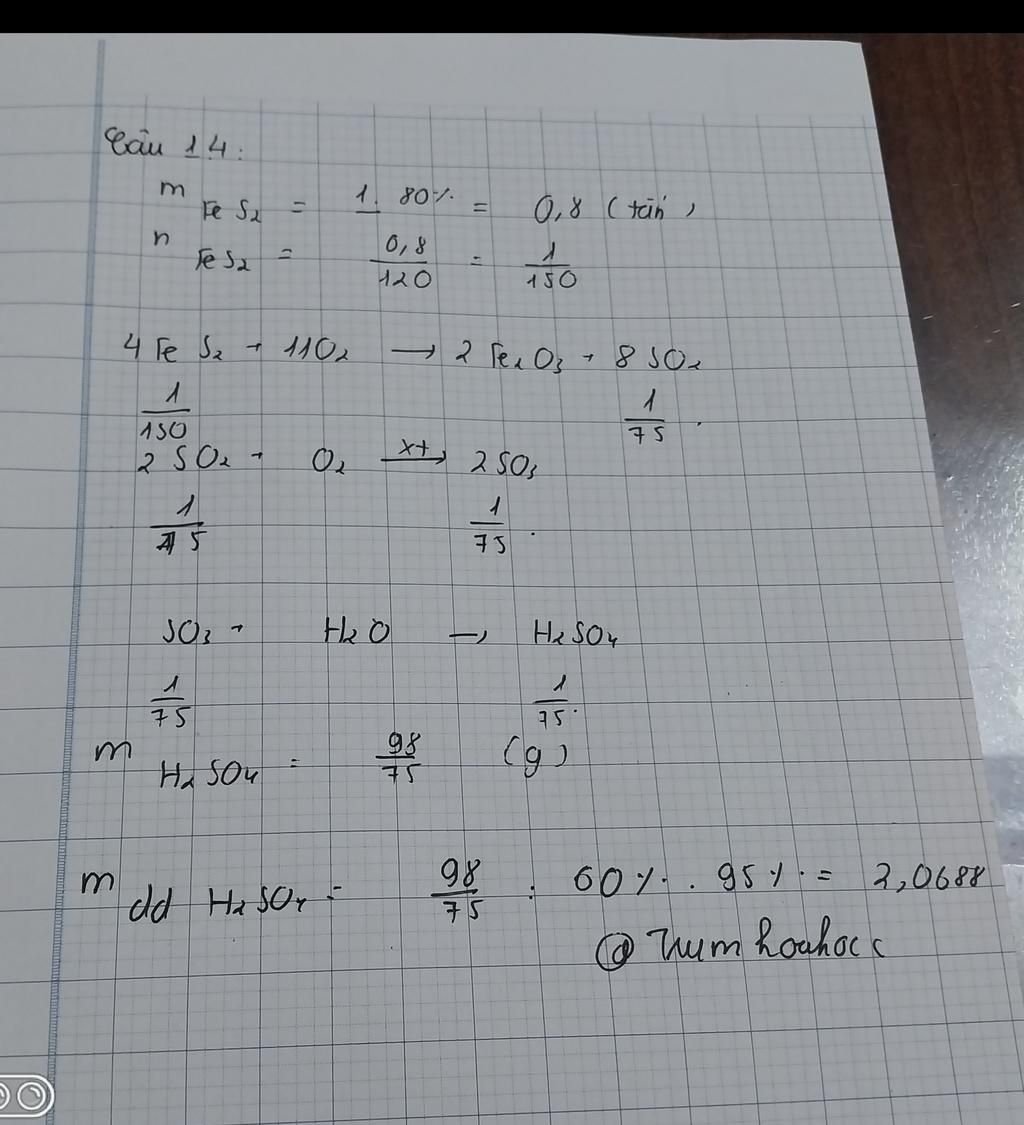 Câu 14:
m FeS₂ = 1. 80% = 0,8 (tấn)
n FeS₂ = 0,8/120 = 1/150
4FeS₂ + 11O₂ → 2Fe₂O₃ + 8SO₂
1/150 1/75.
2SO₂ + O₂ xt→ 2SO₃
1/75 1/75.
SO₃ + H₂O → H₂SO₄
1/75 1/75.
m H₂SO₄ = 98/75 (g)
m dd H₂SO₄ = 98/75 : 60%. 95% = 2,0688